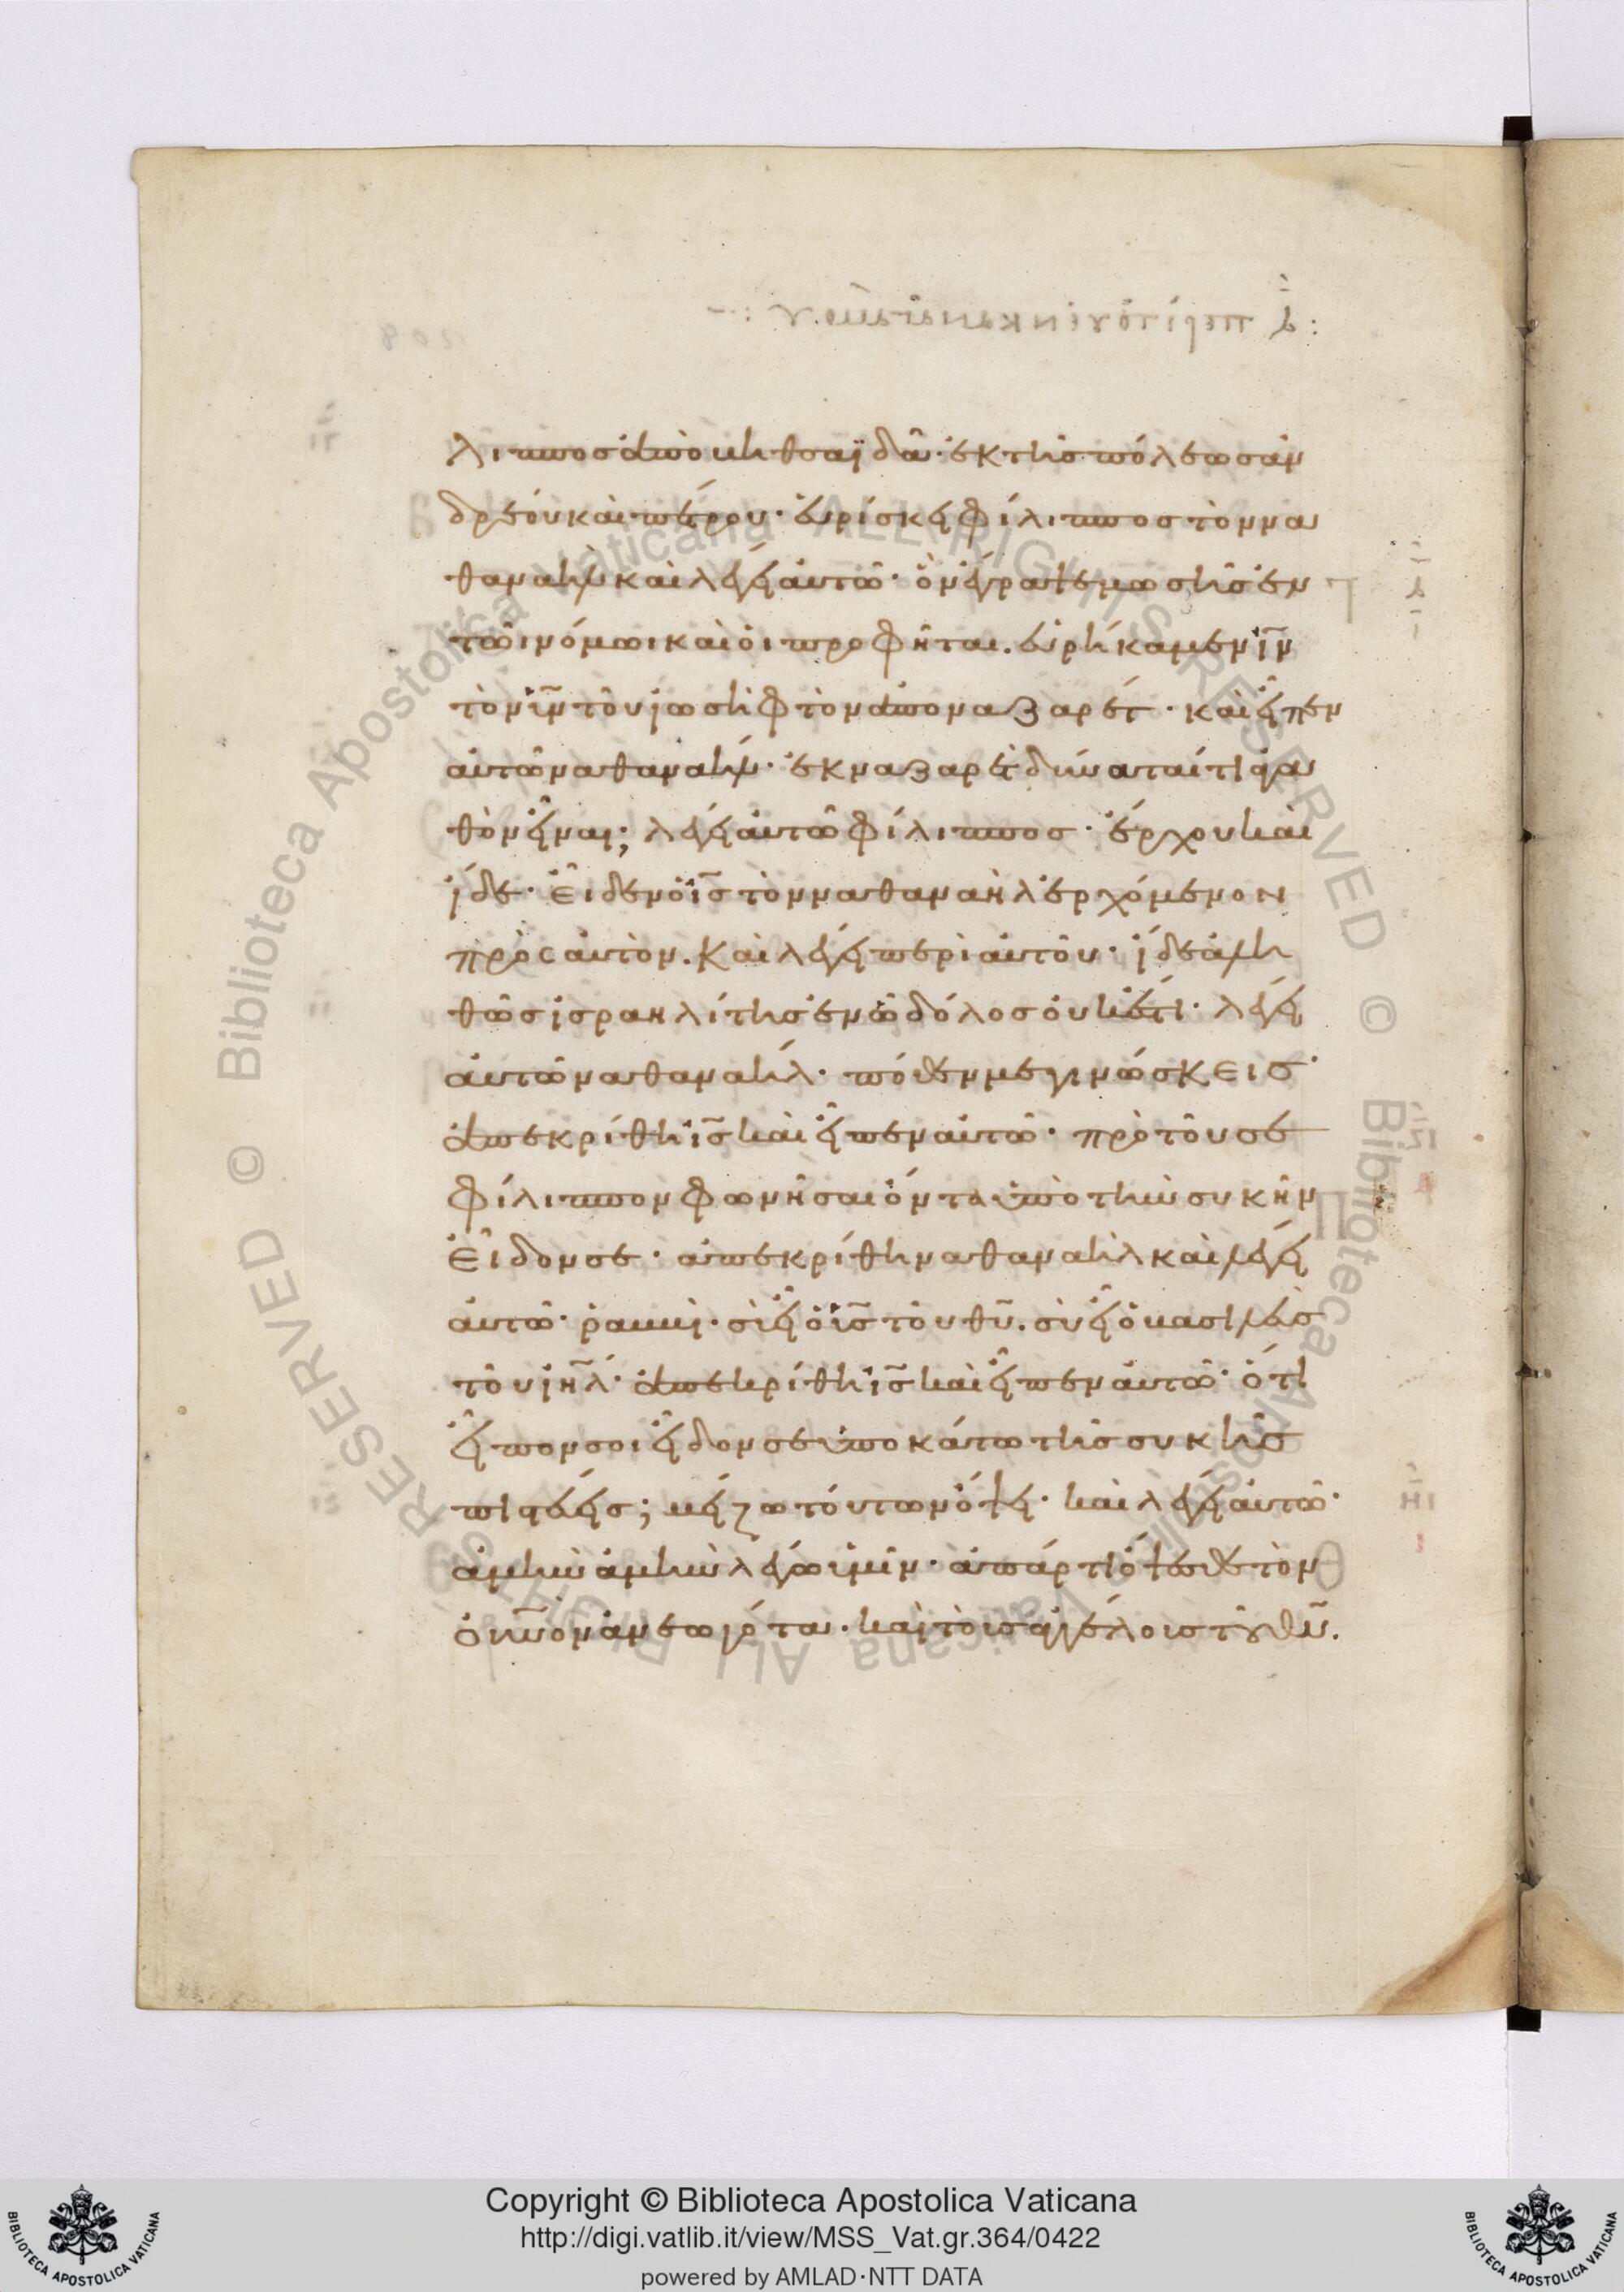 λιπποσ ἀπὸ βηθσαϊδὰ· ἐκ τῆσ πόλεωσ ἀν
δρέου καὶ πέτρου· εὑρίσκει φίλιπποσ τὸν να
θαναὴλ καὶ λέγει αὐτῶ· ὃν ἔγραψε μωσῆσ ἐν
τῶι νόμωι καὶ οἱ προφῆται. εὑρήκαμεν ῖν
τὸν υἱν τοῦ ἰωσὴφ τὸν ἀπὸ ναζαρέτ· καὶ εἶπεν
αὐτῶ ναθαναὴλ· ἐκ ναζαρὲτ δύναταί τι ἀγα
θὸν εἶναι; λέγει αὐτῶ φίλιπποσ· ἔρχου καὶ
ἴδε· εἶδεν ὁ ἰσ τὸν ναθαναὴλ ἐρχόμενον
πρὸς αὐτὸν. καὶ λέγει περὶ αὐτοῦ· ἴδε ἀλη
θῶσ ἰσραηλίτησ ἐν ὧ δόλοσ οὐκ ἔστι· λέγει
αὐτῶ ναθαναήλ· πόθεν με γινώσκεισ·
ἀπεκρίθη ἰσ καὶ εἶπεν αὐτῶ· πρὸ τοῦ σε
φίλιππον φωνῆσαι ὄντα ὑπὸ τὴν συκῆν
εἶδον σε· ἀπεκρίθη ναθαναὴλ καὶ λέγει
αὐτῶ· ῥαββὶ· σὶ εἶ ὁ υἱσ τοῦ θυ. σὺ εἶ ὁ βασιλεὺσ
τοῦ ἰηλ· ἀπεκρίθη ἰσ καὶ εἶπεν αὐτῶ· ὅτι
εἶπον σοι εἶδον σε ὑποκάτω τῆσ συκῆσ
πιστεύεισ; μείζω τούτων ὄψει· καὶ λέγει αὐτῶ·
ἀμὴν ἀμὴν λέγω ὑμῖν· ἀπάρτι ὄψεσθε τὸν
οὐνὸν ἀνεωγότα· καὶ τοὺσ ἀγγέλουσ τοῦ θυ.
Copyright © Biblioteca Apostolica Vaticana
http://digi.vatlib.it/view/MSS_Vat.gr.364/0422
powered by AMLAD·NTT DATA
BIBLIOTECA APOSTOLICA VATICANA
BIBLIOTECA APOSTOLICA VATICANA
© Biblioteca Apostolica Vaticana ALL RIGHTS RESERVED
© Biblioteca Apostolica Vaticana ALL RIGHTS RESERVED